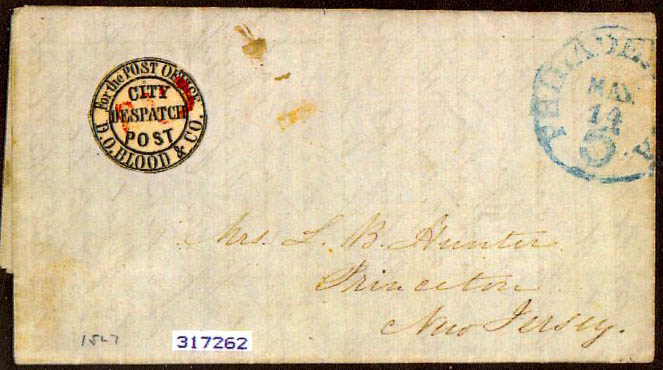 For the POST OFFICE
CITY
DESPATCH
POST
D.O. BLOOD & CO.
MAY
14
5
Mrs. L. B. Hunter
Princeton
New Jersey.
1847
317262